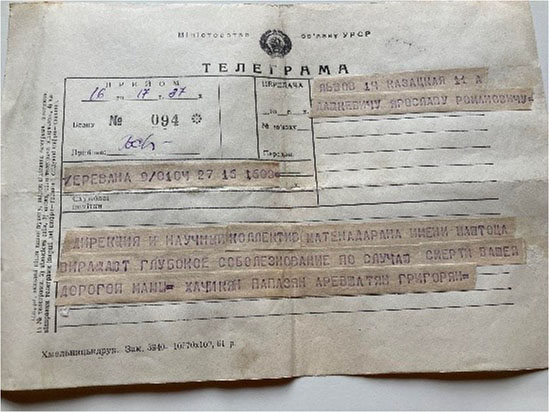 Міністерство зв'язку УРСР
ТЕЛЕГРАМА
ПРИЙОМ
16 го 17 г. 37
Бланк № 094
Прийняв:
ПЕРЕДАЧА
го
№ зв'язку
Передав
ЛЬВОВ 14 КАЗАЦКАЯ 11 А
ДАШКЕВИЧУ ЯРОСЛАВУ РОМАНОВИЧУ=
ЕРЕВАНА 9/8104 27 15 1509=
Службові
помітки
ДИРЕКЦИЯ И НАУЧНЫЙ КОЛЛЕКТИВ МАТЕНАДАРАНА ИМЕНИ МАШТОЦА
ВИРАЖАЮТ ГЛУБОКОЕ СОБОЛЕЗНОВАНИЕ ПО СЛУЧАЮ СМЕРТИ ВАШЕЙ
ДОРОГОЙ МАМЫ= ХАЧИКЯН ПАПАЗЯН АРЕВШАТЯН ГРИГОРЯН=
Хмельницьдрук. Зак. 5940